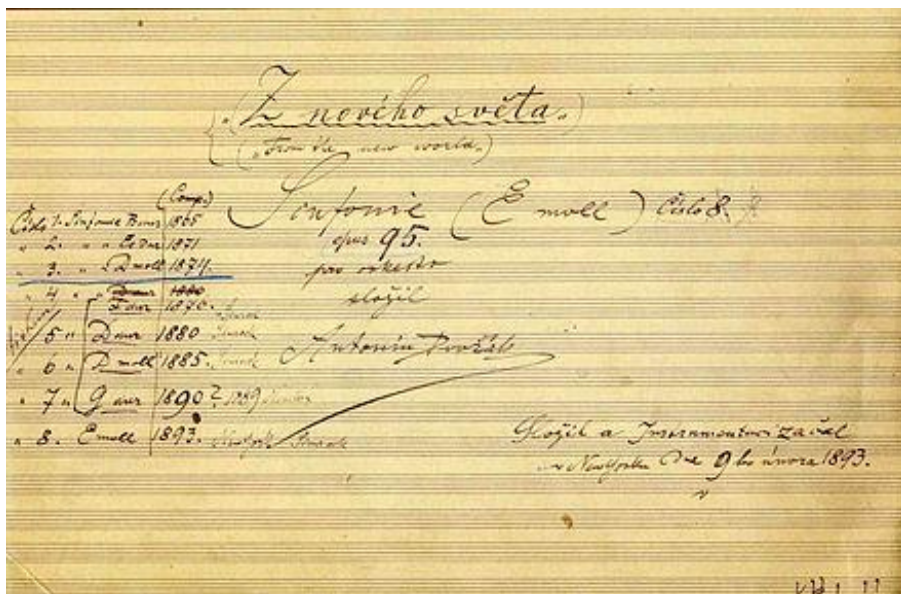 „Z nového světa."
(„From the new world.")
Sinfonie (E moll) Číslo 8.
opus 95.
pro orkestr
složil
Antonín Dvořák
(Comp.)
Číslo 1. Sinfonie B mol 1865
" 2. " " Es dur 1871
" 3. " D moll 1874.
" 4 " D dur 1880
F dur 1870.
5 " D dur 1880
" 6 " D moll 1885.
" 7 " G dur 1890? 1889
" 8. E moll 1893. New York
Složil a Instrumentaci začal
v New Yorku Dne 9ho února 1893.